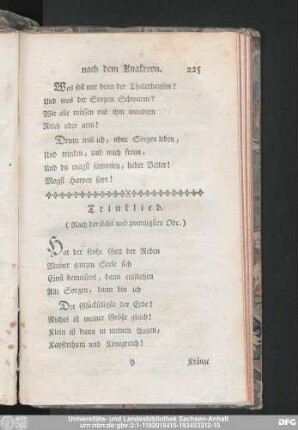 nach dem Anakreon. 225
Was soll mir denn der Thalerhaufen?
Und was der Sorgen Schwarm?
Wir alle müssen mit ihm wandern
Reich oder arm!
Drum will ich, ohne Sorgen leben,
Und trinken, und mich freun,
Und du magst sammlen, lieber Vetter!
Magst Harpax seyn!
Trinklied.
(Nach der sechs und zwanzigsten Ode.)
Hat der frohe Gott der Reben
Meiner ganzen Seele sich
Einst bemeistert, dann entfliehen
Alle Sorgen, dann bin ich
Der Glückseligste der Erde!
Nichts ist meiner Größe gleich!
Klein ist dann in meinen Augen,
Kayserthum und Königreich!
P Kränze
Universitäts- und Landesbibliothek Sachsen-Anhalt
urn:nbn:de:gbv:3:1-1192015415-183453312-15
DFG